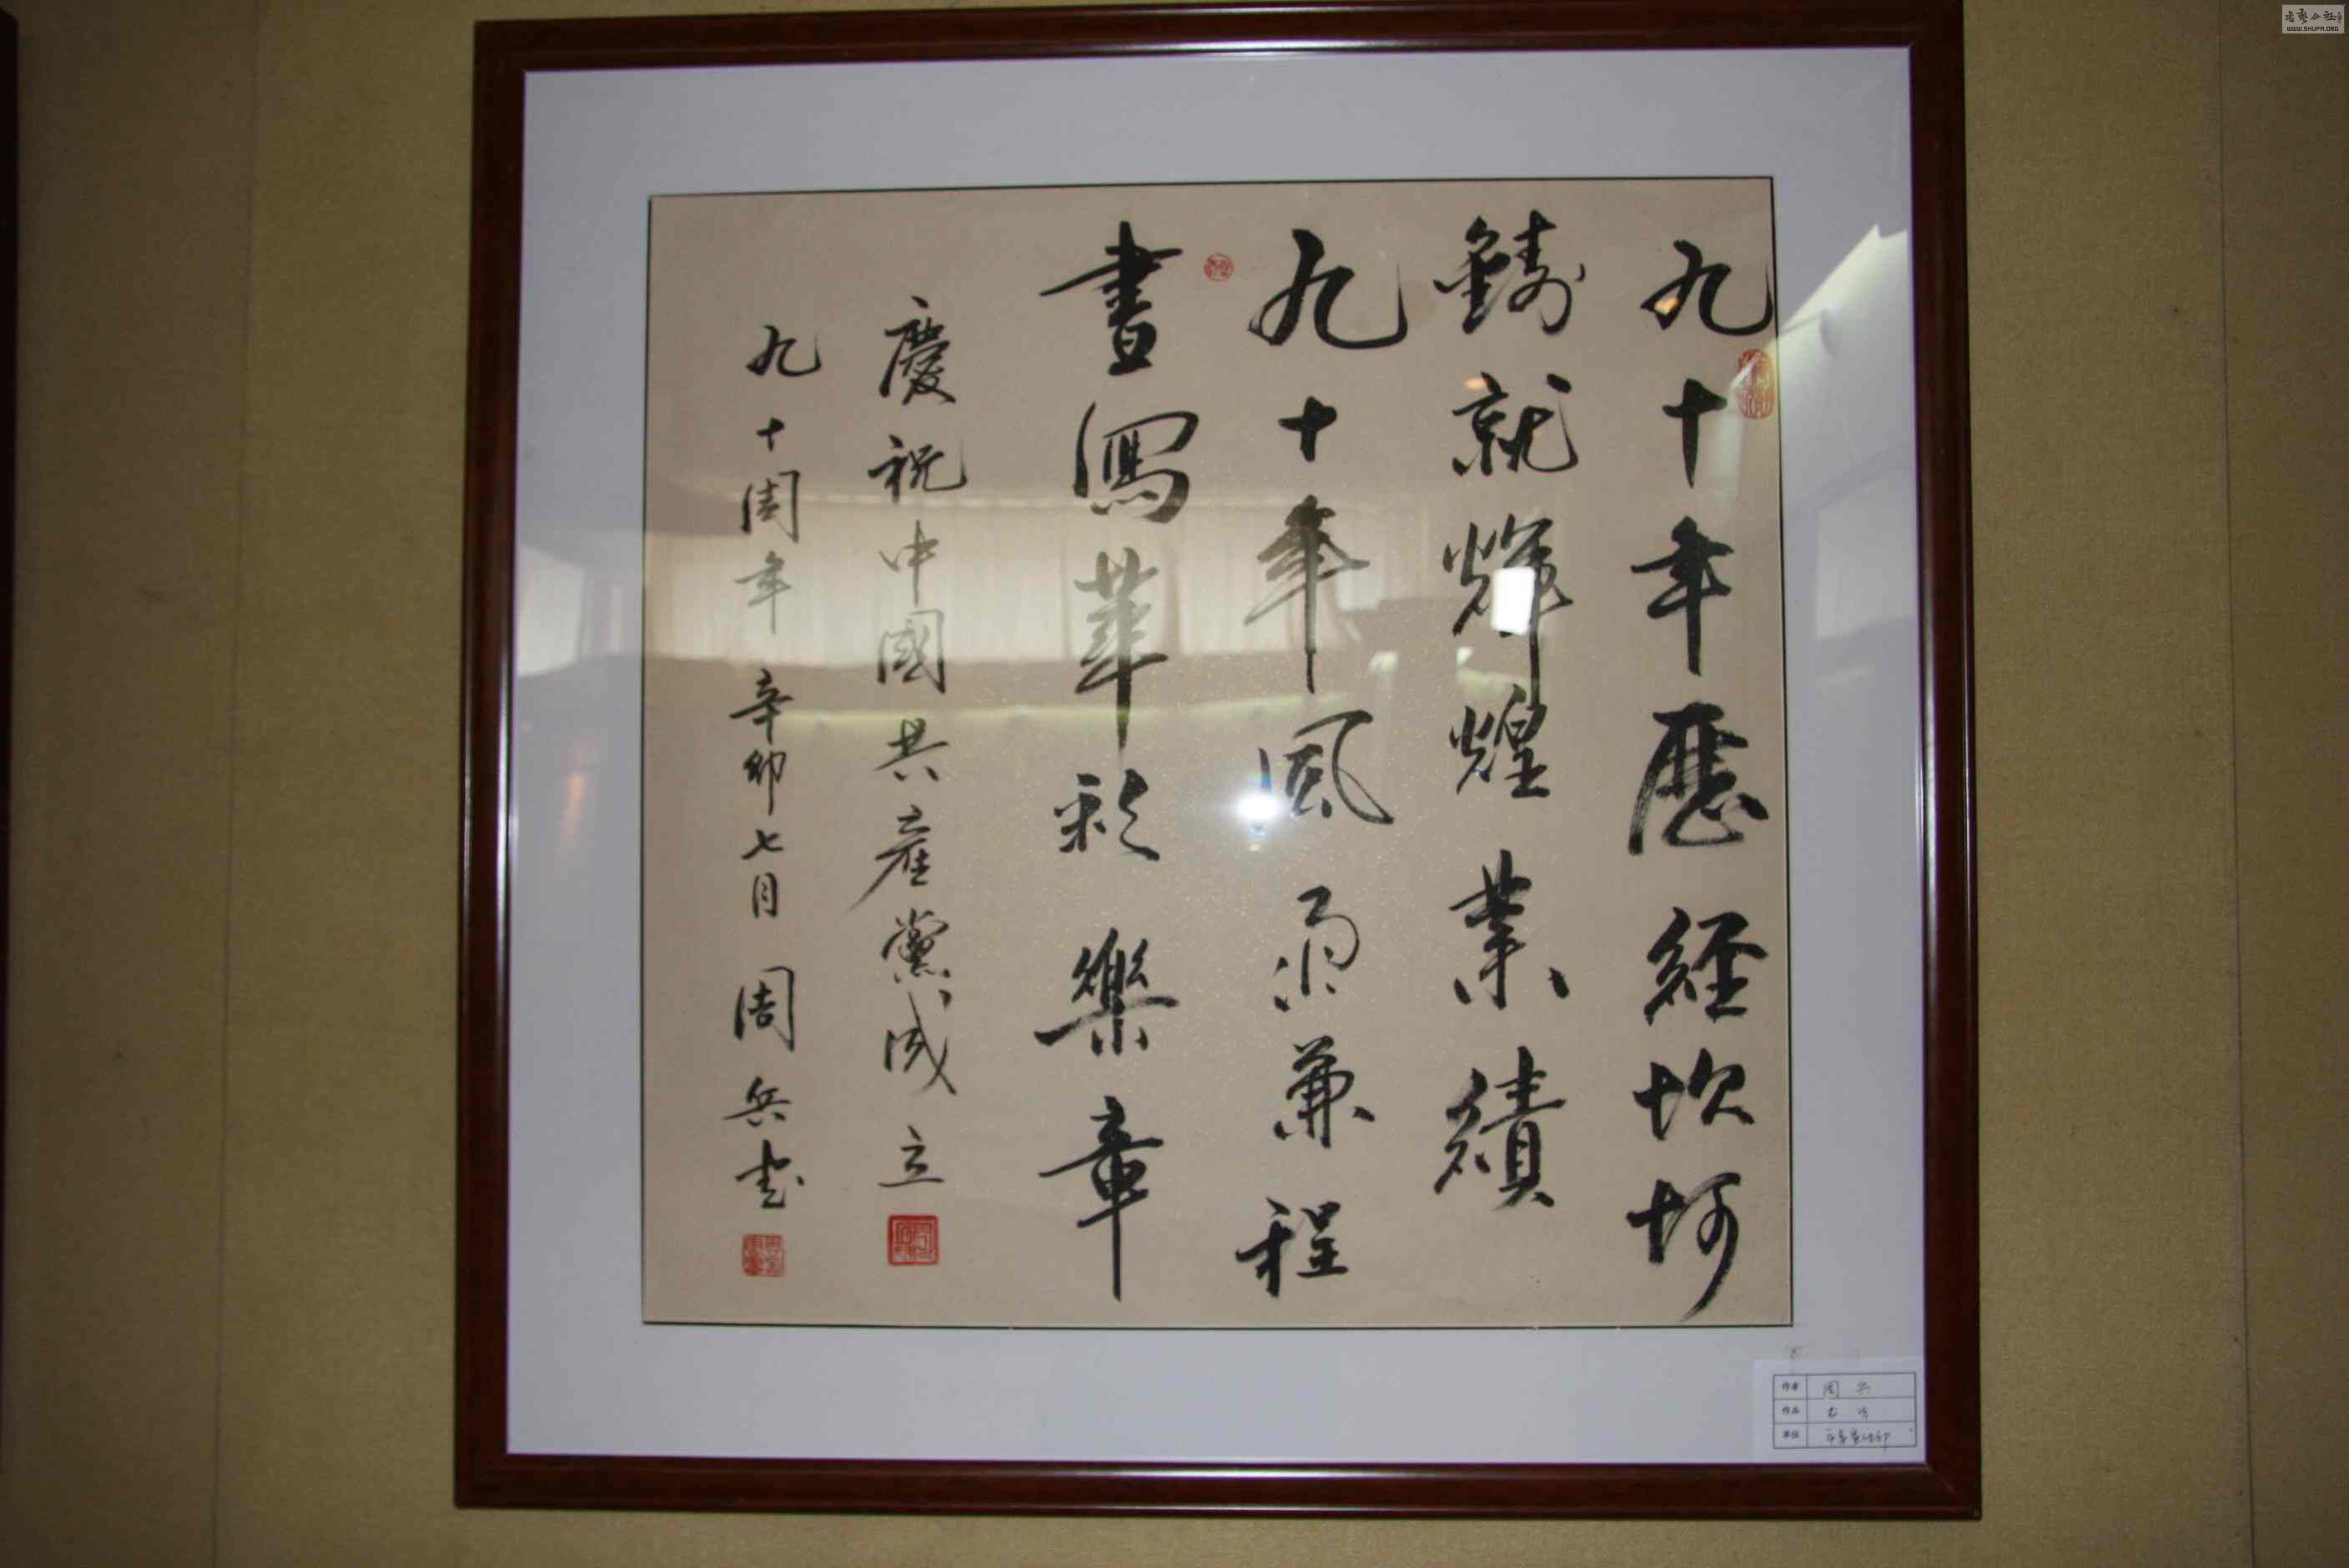 九十年歷經坎坷
鑄就輝煌業績
九十年風雨兼程
書寫華彩樂章
慶祝中國共產黨成立
九十周年 辛卯七月 周兵書
作者 周兵
作品 书法
单位
WWW.SHUFA.ORG